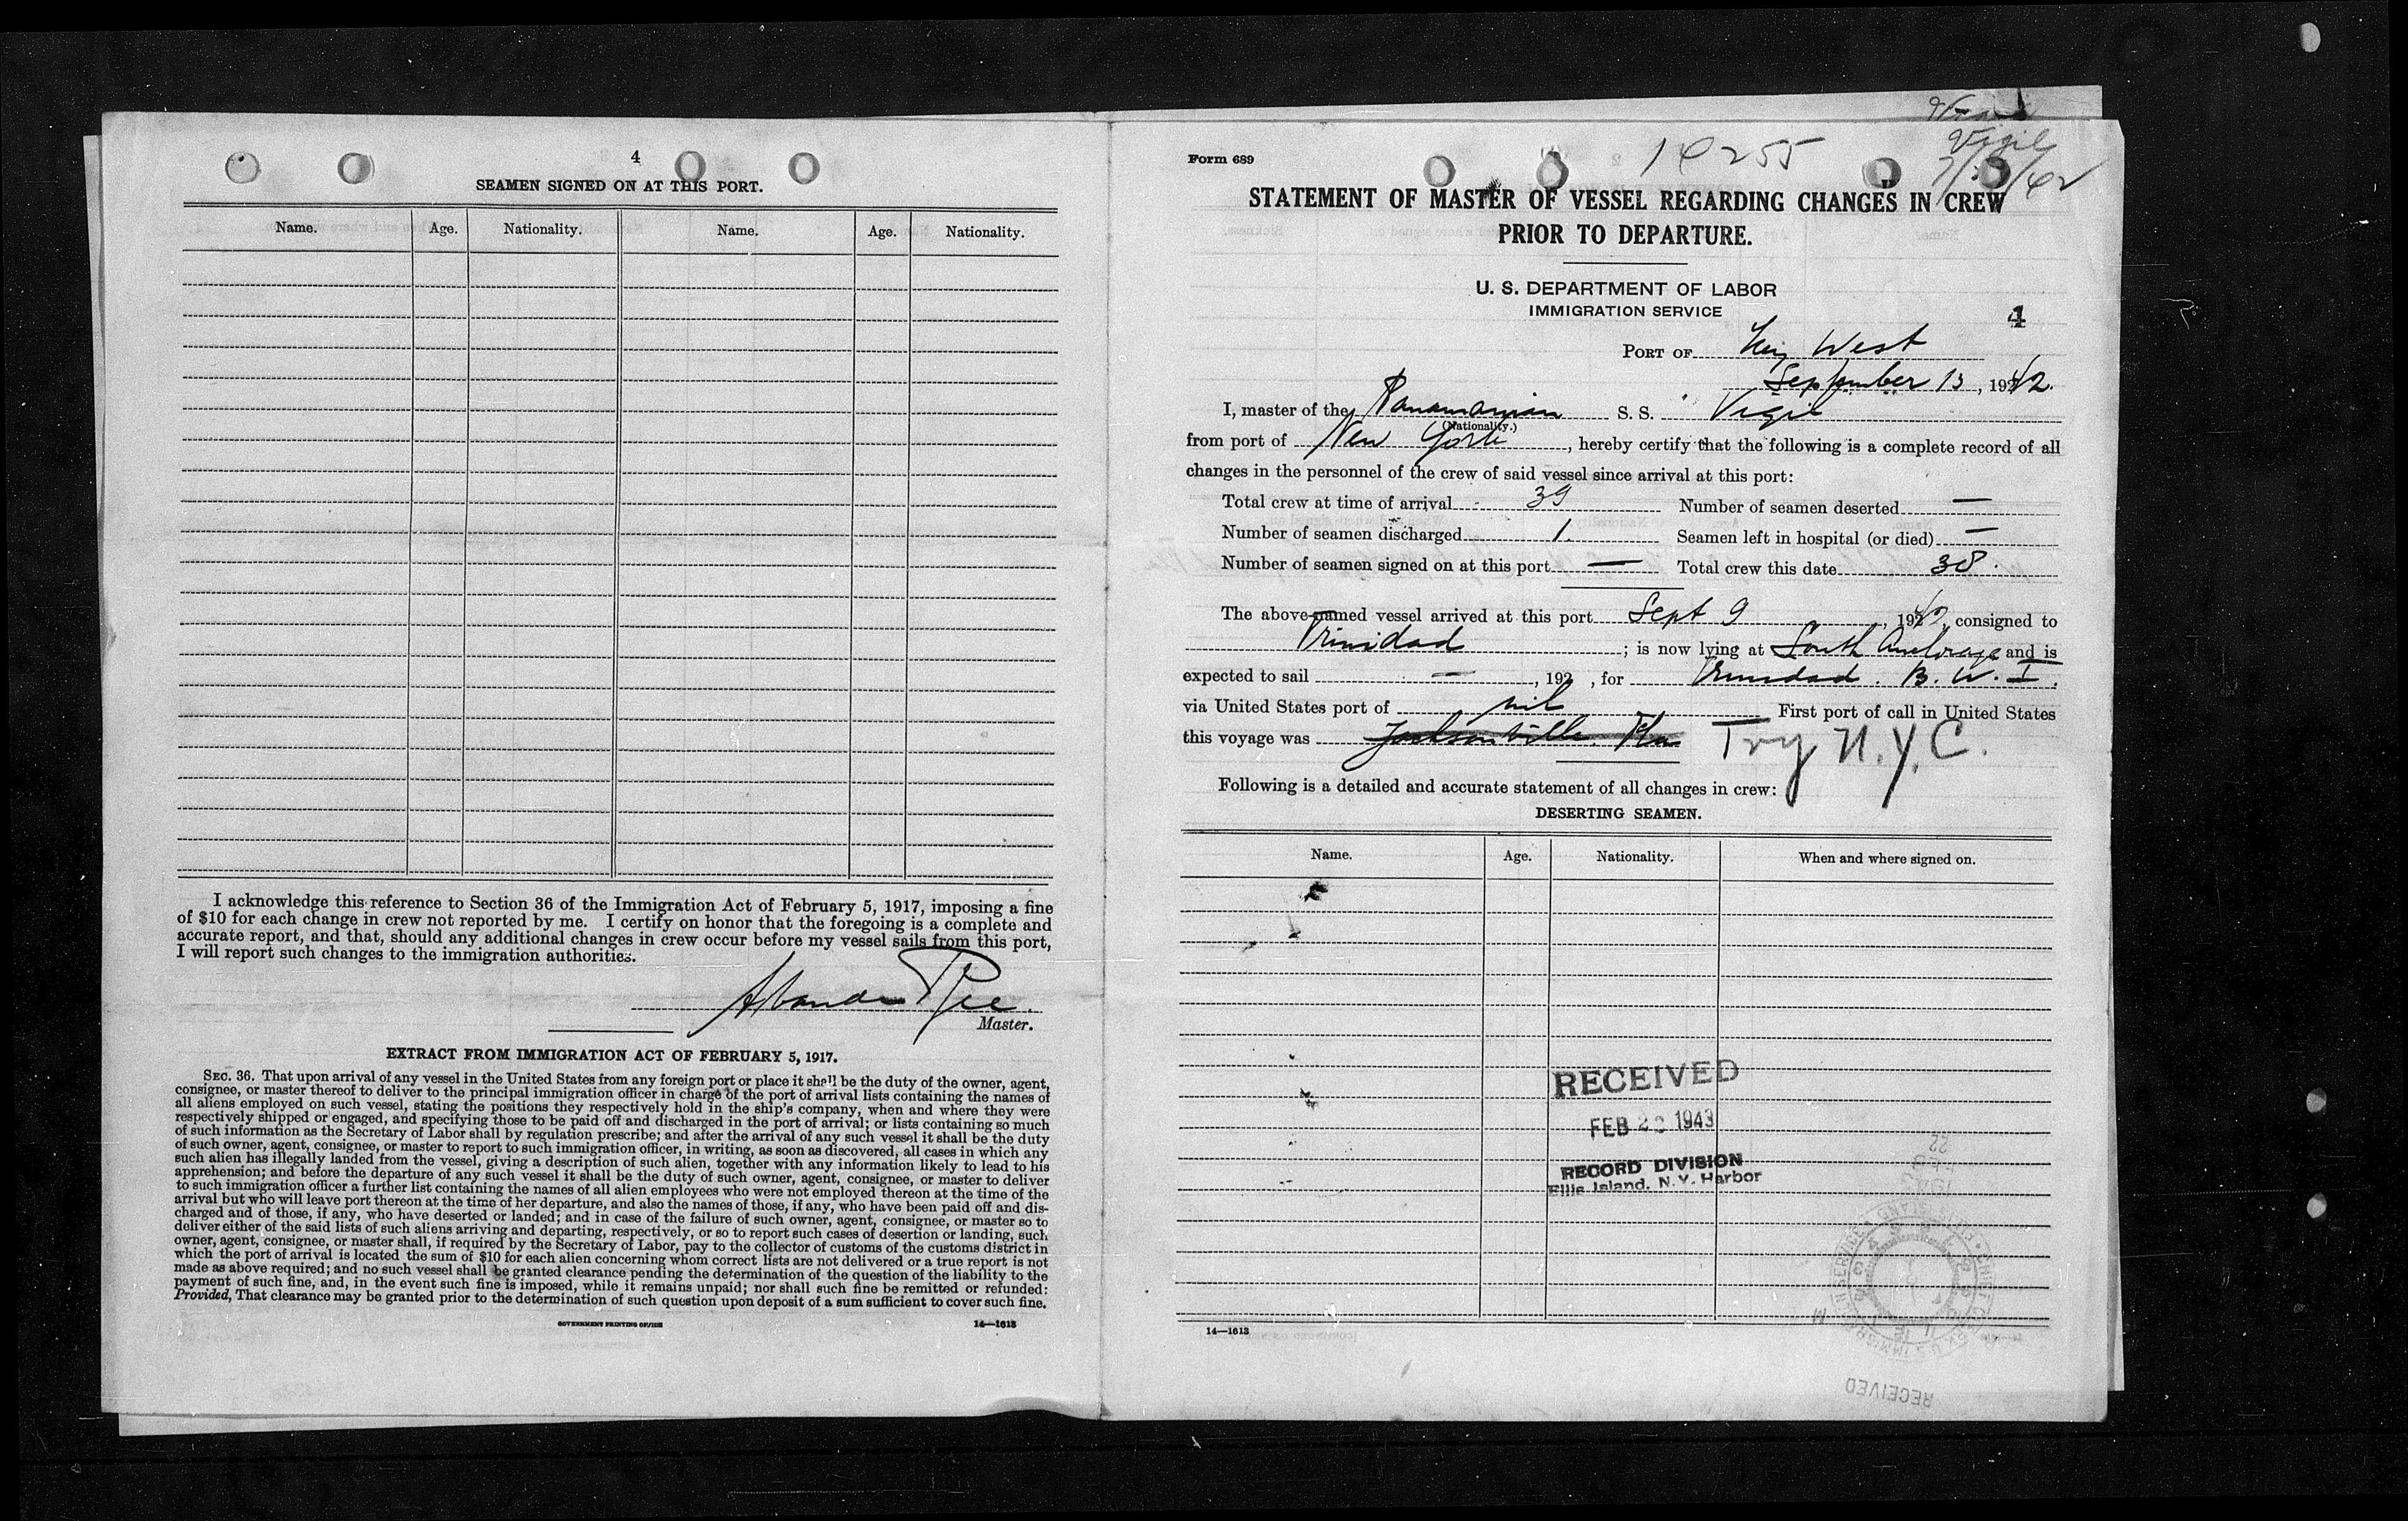 4
SEAMEN SIGNED ON AT THIS PORT.
Name. Age. Nationality. Name. Age. Nationality.
I acknowledge this reference to Section 36 of the Immigration Act of February 5, 1917, imposing a fine
of $10 for each change in crew not reported by me. I certify on honor that the foregoing is a complete and
accurate report, and that, should any additional changes in crew occur before my vessel sails from this port,
I will report such changes to the immigration authorities.
Master.
EXTRACT FROM IMMIGRATION ACT OF FEBRUARY 5, 1917.
SEC. 36. That upon arrival of any vessel in the United States from any foreign port or place it shall be the duty of the owner, agent,
consignee, or master thereof to deliver to the principal immigration officer in charge of the port of arrival lists containing the names of
all aliens employed on such vessel, stating the positions they respectively hold in the ship's company, when and where they were
respectively shipped or engaged, and specifying those to be paid off and discharged in the port of arrival; or lists containing so much
of such information as the Secretary of Labor shall by regulation prescribe; and after the arrival of any such vessel it shall be the duty
of such owner, agent, consignee, or master to report to such immigration officer, in writing, as soon as discovered, all cases in which any
such alien has illegally landed from the vessel, giving a description of such alien, together with any information likely to lead to his
apprehension; and before the departure of any such vessel it shall be the duty of such owner, agent, consignee, or master to deliver
to such immigration officer a further list containing the names of all alien employees who were not employed thereon at the time of the
arrival but who will leave port thereon at the time of her departure, and also the names of those, if any, who have been paid off and dis-
charged and of those, if any, who have deserted or landed; and in case of the failure of such owner, agent, consignee, or master so to
deliver either of the said lists of such aliens arriving and departing, respectively, or so to report such cases of desertion or landing, such
owner, agent, consignee, or master shall, if required by the Secretary of Labor, pay to the collector of customs of the customs district in
which the port of arrival is located the sum of $10 for each alien concerning whom correct lists are not delivered or a true report is not
made as above required; and no such vessel shall be granted clearance pending the determination of the question of the liability to the
payment of such fine, and, in the event such fine is imposed, while it remains unpaid; nor shall such fine be remitted or refunded:
Provided, That clearance may be granted prior to the determination of such question upon deposit of a sum sufficient to cover such fine.
GOVERNMENT PRINTING OFFICE 14—1613
Vigil
Form 689
STATEMENT OF MASTER OF VESSEL REGARDING CHANGES IN CREW
PRIOR TO DEPARTURE.
U. S. DEPARTMENT OF LABOR
IMMIGRATION SERVICE
4
PORT OF Key West
September 13, 1942.
I, master of the Panamanian S. S. "Vigil
(Nationality.)
from port of New York, hereby certify that the following is a complete record of all
changes in the personnel of the crew of said vessel since arrival at this port:
Total crew at time of arrival 39 Number of seamen deserted —
Number of seamen discharged 1. Seamen left in hospital (or died) —
Number of seamen signed on at this port — Total crew this date 38.
The above-named vessel arrived at this port Sept 9, 1942, consigned to
Trinidad; is now lying at South Anchorage and is
expected to sail —, 192 , for Trinidad. B. W. I.
via United States port of nil First port of call in United States
this voyage was Jacksonville. Fla Try N.Y.C.
Following is a detailed and accurate statement of all changes in crew:
DESERTING SEAMEN.
Name. Age. Nationality. When and where signed on.
RECEIVED
FEB 1943
RECORD DIVISION
Ellis Island, N.Y. Harbor
14—1613
RECEIVED